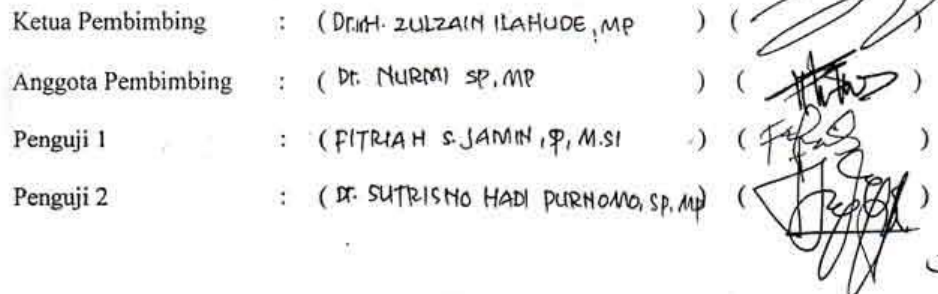 Ketua Pembimbing : ( Dr.IrH. ZULZAIN ILAHUDE, MP ) ( )
Anggota Pembimbing : ( Dr. NURMI SP, MP ) ( )
Penguji 1 : ( FITRIAH S. JAMIN, SP, M.SI ) ( )
Penguji 2 : ( Dr. SUTRISNO HADI PURNOMO, SP, MP ) ( )